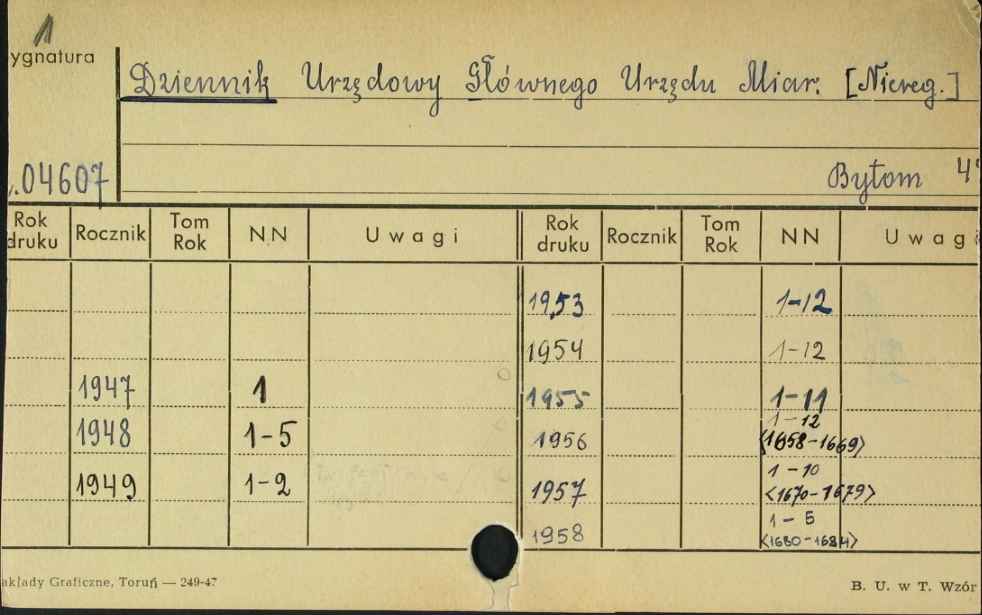 1
ygnatura
Dziennik Urzędowy Głównego Urzędu Miar. [Niereg.]
.04607
Bytom 4°
Rok druku Rocznik Tom Rok NN Uwagi Rok druku Rocznik Tom Rok NN Uwagi
1953 1-12
1954 1-12
1947 1 1955 1-11
1948 1-5 1956 1-12 <1658-1669>
1949 1-2 1957 1-10 <1670-1679>
1958 1-5 <1680-1684>
akłady Graficzne, Toruń — 249-47
B. U. w T. Wzór